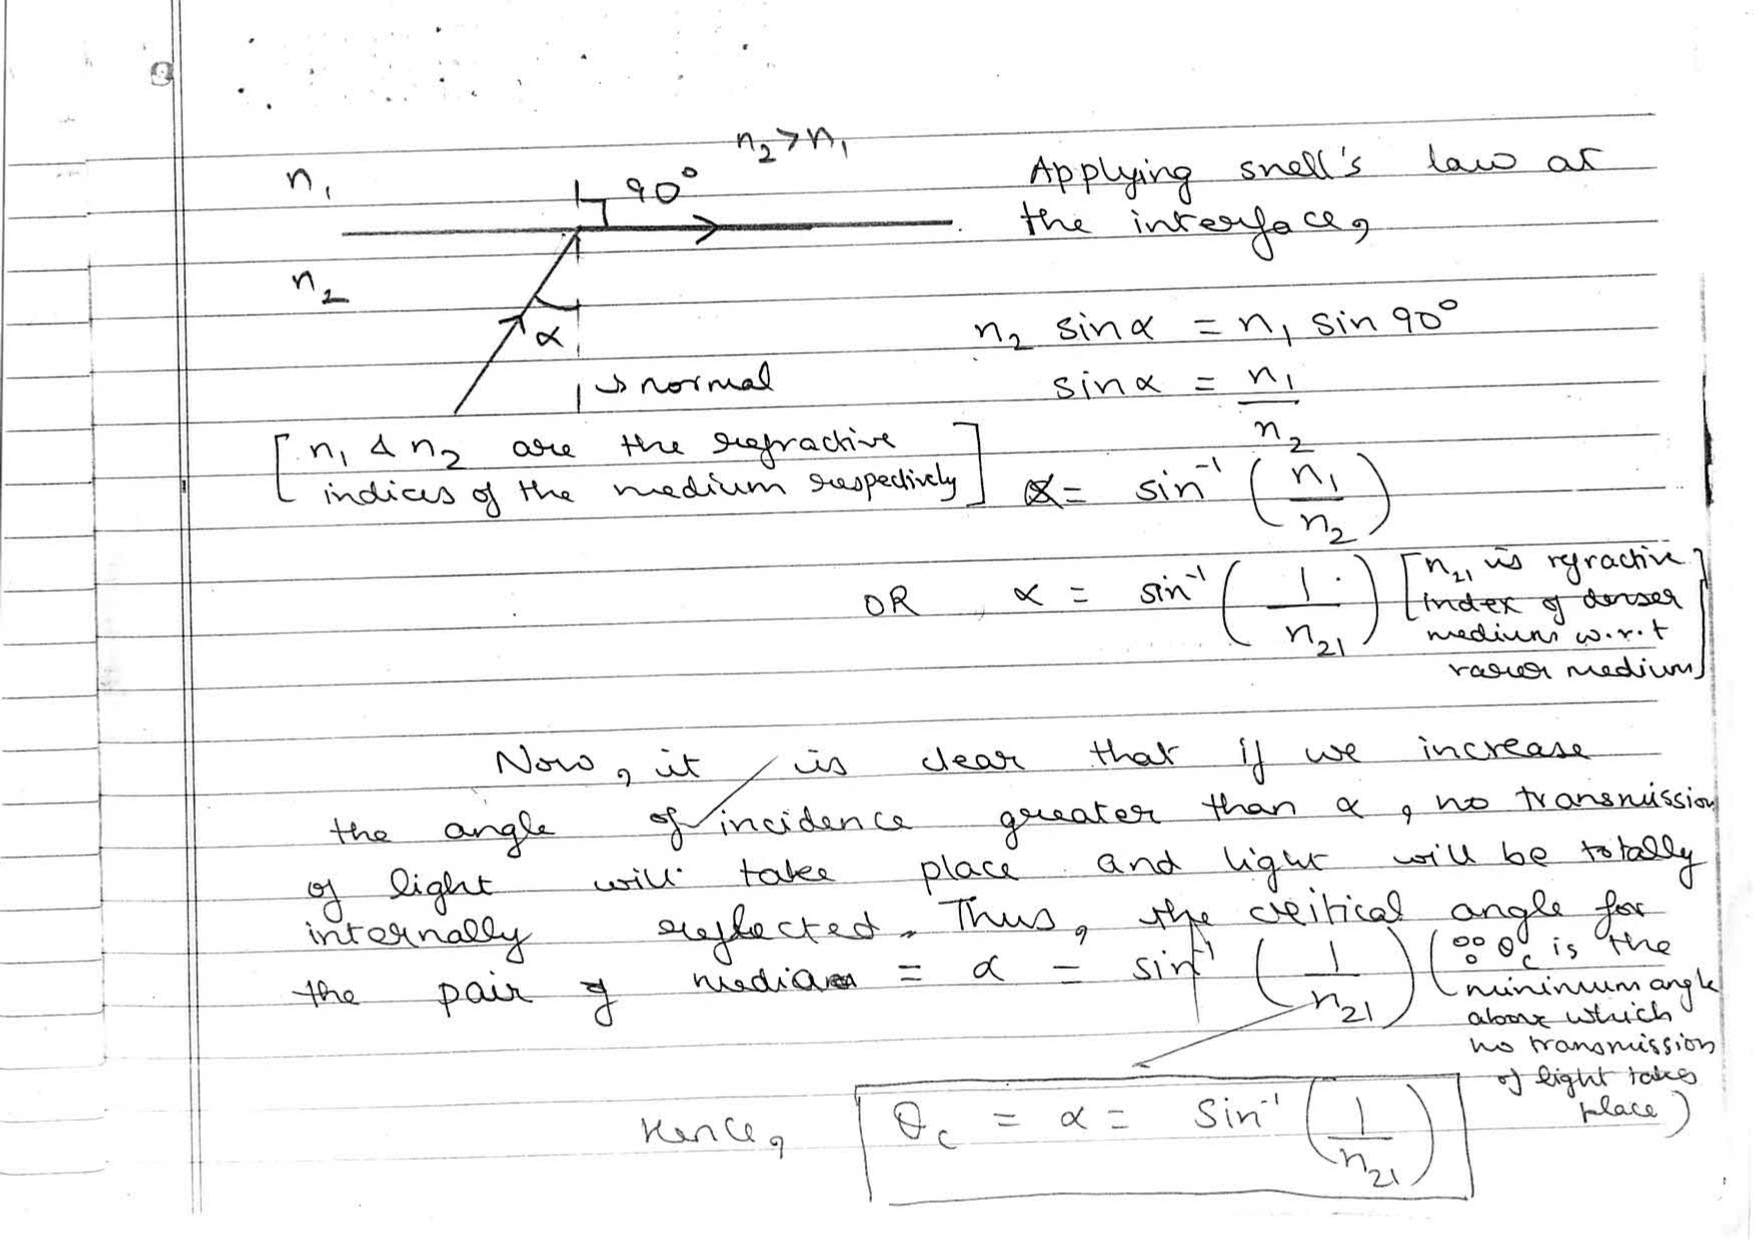 n₂ > n₁
n₁
90°
n₂
α
↳ normal
[n₁ & n₂ are the refractive
indices of the medium respectively]
Applying snell's law at
the interface,
n₂ sin α = n₁ sin 90°
sin α = n₁/n₂
α = sin⁻¹ (n₁/n₂)
OR , α = sin⁻¹ (1/n₂₁)
[n₂₁ is refractive
index of denser
medium w.r.t
rarer medium]
Now, it is clear that if we increase
the angle of incidence greater than α, no transmission
of light will take place and light will be totally
internally reflected. Thus, the critical angle for
the pair of media = α = sin⁻¹ (1/n₂₁)
(∵ θc is the
minimum angle
above which
no transmission
of light takes
place)
Hence, θc = α = Sin⁻¹ (1/n₂₁)